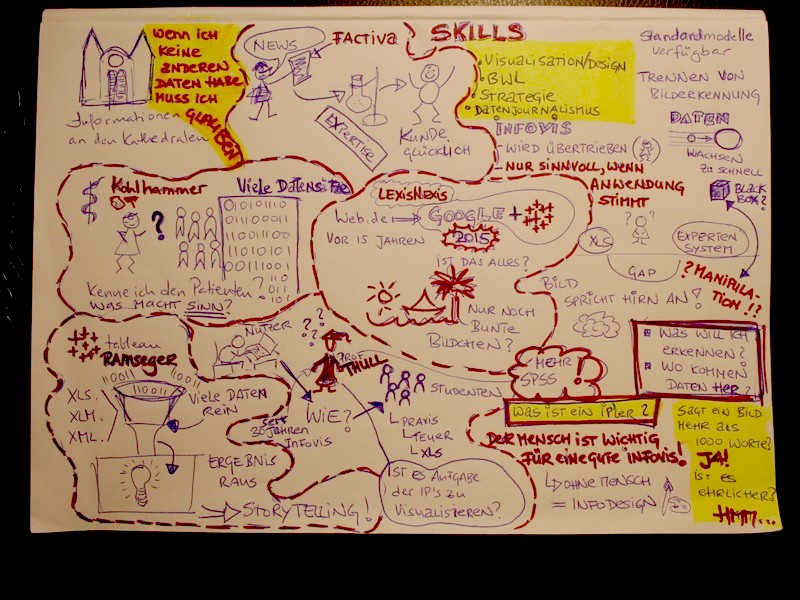 Wenn ich
keine
anderen
Daten habe
muss ich
glauben
Informationen
an den Kathedralen
NEWS
FACTIVA
EXPERTISE
KUNDE
GLÜCKLICH
SKILLS
• VISUALISATION/DESIGN
• BWL
• STRATEGIE
• DATENJOURNALISMUS
INFOVIS
- WIRD ÜBERTRIEBEN
- NUR SINNVOLL, WENN
ANWENDUNG
STIMMT
Standardmodelle
verfügbar
TRENNEN VON
BILDERKENNUNG
DATEN
WACHSEN
ZU SCHNELL
BLACK
BOX?
? MANIPULA-
TION!?
XLS
EXPERTEN
SYSTEM
GAP
BILD
SPRICHT HIRN AN!
Kohlhammer
Viele Datensätze
?
01010110
01100011
Kenne ich den Patienten?
WAS MACHT SINN?
LEXISNEXIS
Web.de
GOOGLE +
VOR 15 JAHREN
2015
IST DAS ALLES?
NUR NOCH
BUNTE
BILDCHEN?
tableau
RAMSEGER
XLS.
XLM.
XML.
VIELE DATEN
REIN
ERGEBNIS
RAUS
STORYTELLING!
NUTZER
? ? ?
PROF
THULL
WIE?
SEIT
30 JAHREN
INFOVIS
STUDENTEN
PRAXIS
TEUER
XLS
IST ES AUFGABE
der IP's ZU
VISUALISIEREN?
MEHR
SPSS
!?
WAS IST EIN IPLER?
DER MENSCH IST WICHTIG
FÜR EINE GUTE INFOVIS!
OHNE MENSCH
= INFODESIGN
WAS WILL ICH
ERKENNEN?
WO KOMMEN
DATEN HER?
SAGT EIN BILD
MEHR ALS
1000 WORTE?
JA!
IST ES
EHRLICHER?
HMM...